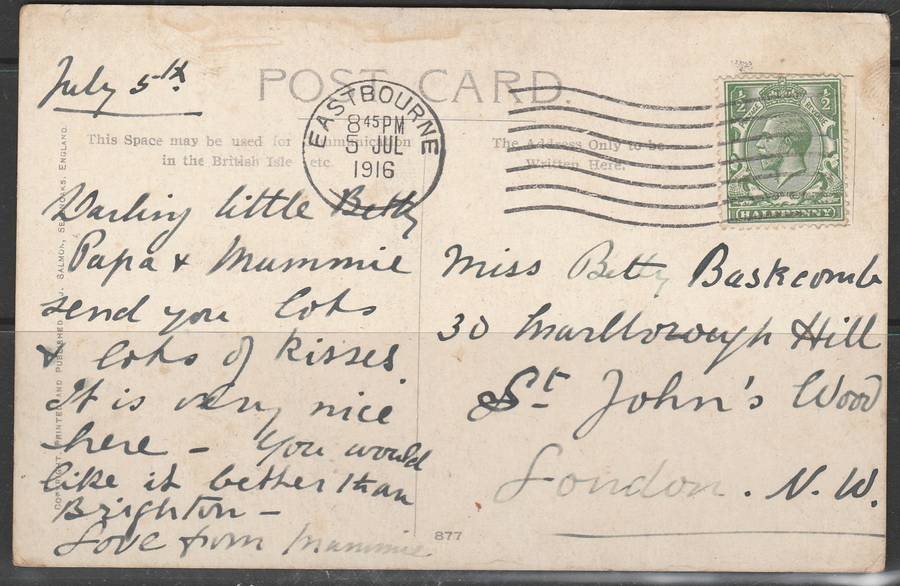 July 5th
POST CARD.
EASTBOURNE
8 45 PM
5 JUL
1916
1/2 1/2
HALFPENNY
This Space may be used for Communication
in the British Isle etc.
The Address Only to be
Written Here.
Darling little Betty
Papa & Mummie
send you lots
& lots of kisses
It is very nice
here - You would
like it better than
Brighton -
Love from Mummie
Miss Betty Baskcomb
30 Marlborough Hill
St. John's Wood
London. N.W.
877
COPYRIGHT. PRINTED AND PUBLISHED J. SALMON, SEVENOAKS, ENGLAND.